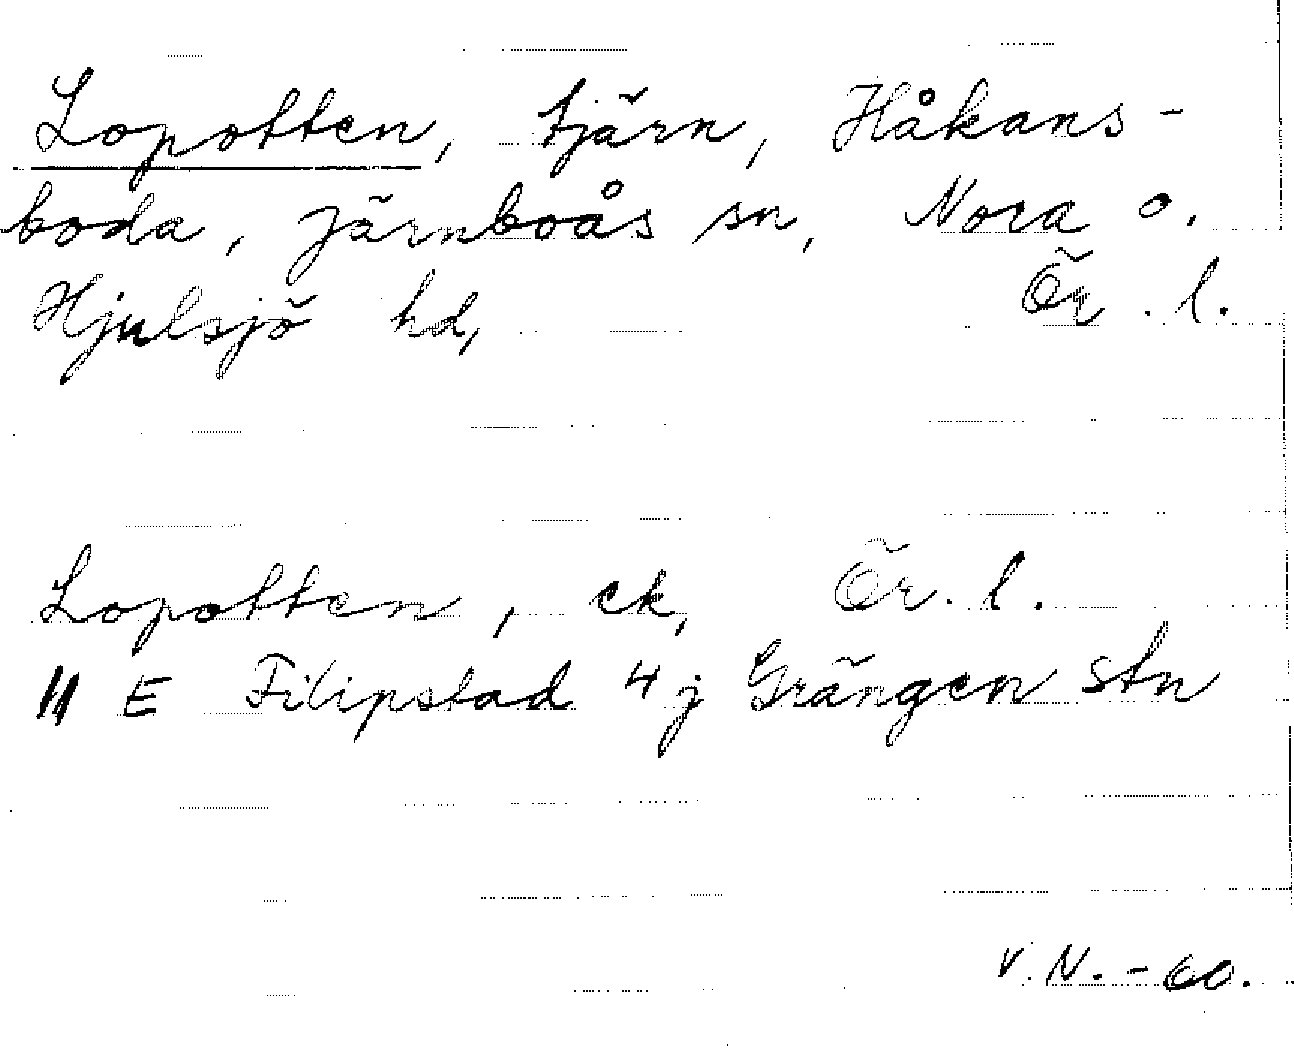 Lopotten, tjärn, Håkans-
boda, Järnboås sn, Nora o.
Hjulsjö hd, Ör. l.
Lopotten, ek, Ör. l.
11 E Filipstad 4 j Grängen stn
V. N. - 60.